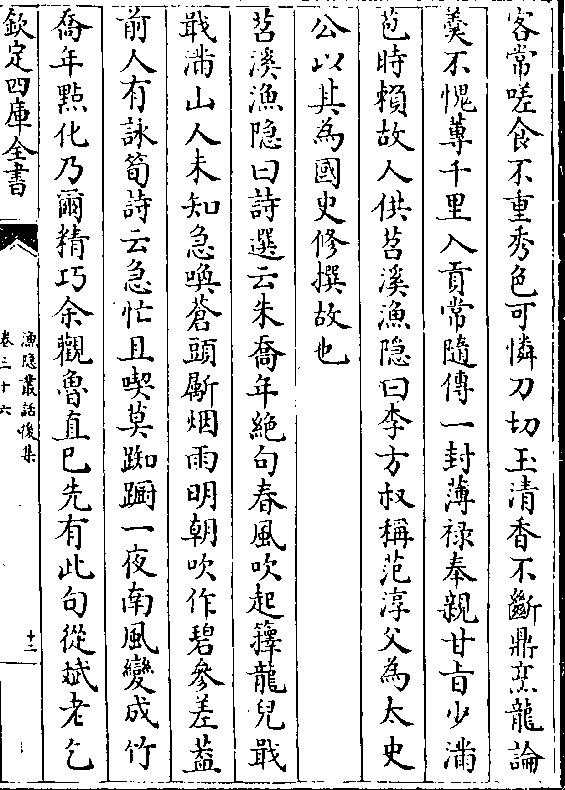 客常嗟食不重秀色可憐刀切玉清香不斷鼎烹龍論
羮不愧蓴千里入貢常隨傳一封薄禄奉親甘旨少滿
苞時賴故人供苕溪漁隐曰李方叔稱范淳父為太史
公以其為國史修撰故也
苕溪漁隐曰詩選云朱喬年絶句春風吹起籜龍兒戢
戢滿山人未知急喚蒼頭斸烟雨明朝吹作碧參差葢
前人有詠筍詩云急忙且喫莫踟蹰一夜南風變成竹
喬年點化乃爾精巧余觀魯直已先有此句從斌老乞
欽定四庫全書
漁隐叢話後集
卷三十六
十三